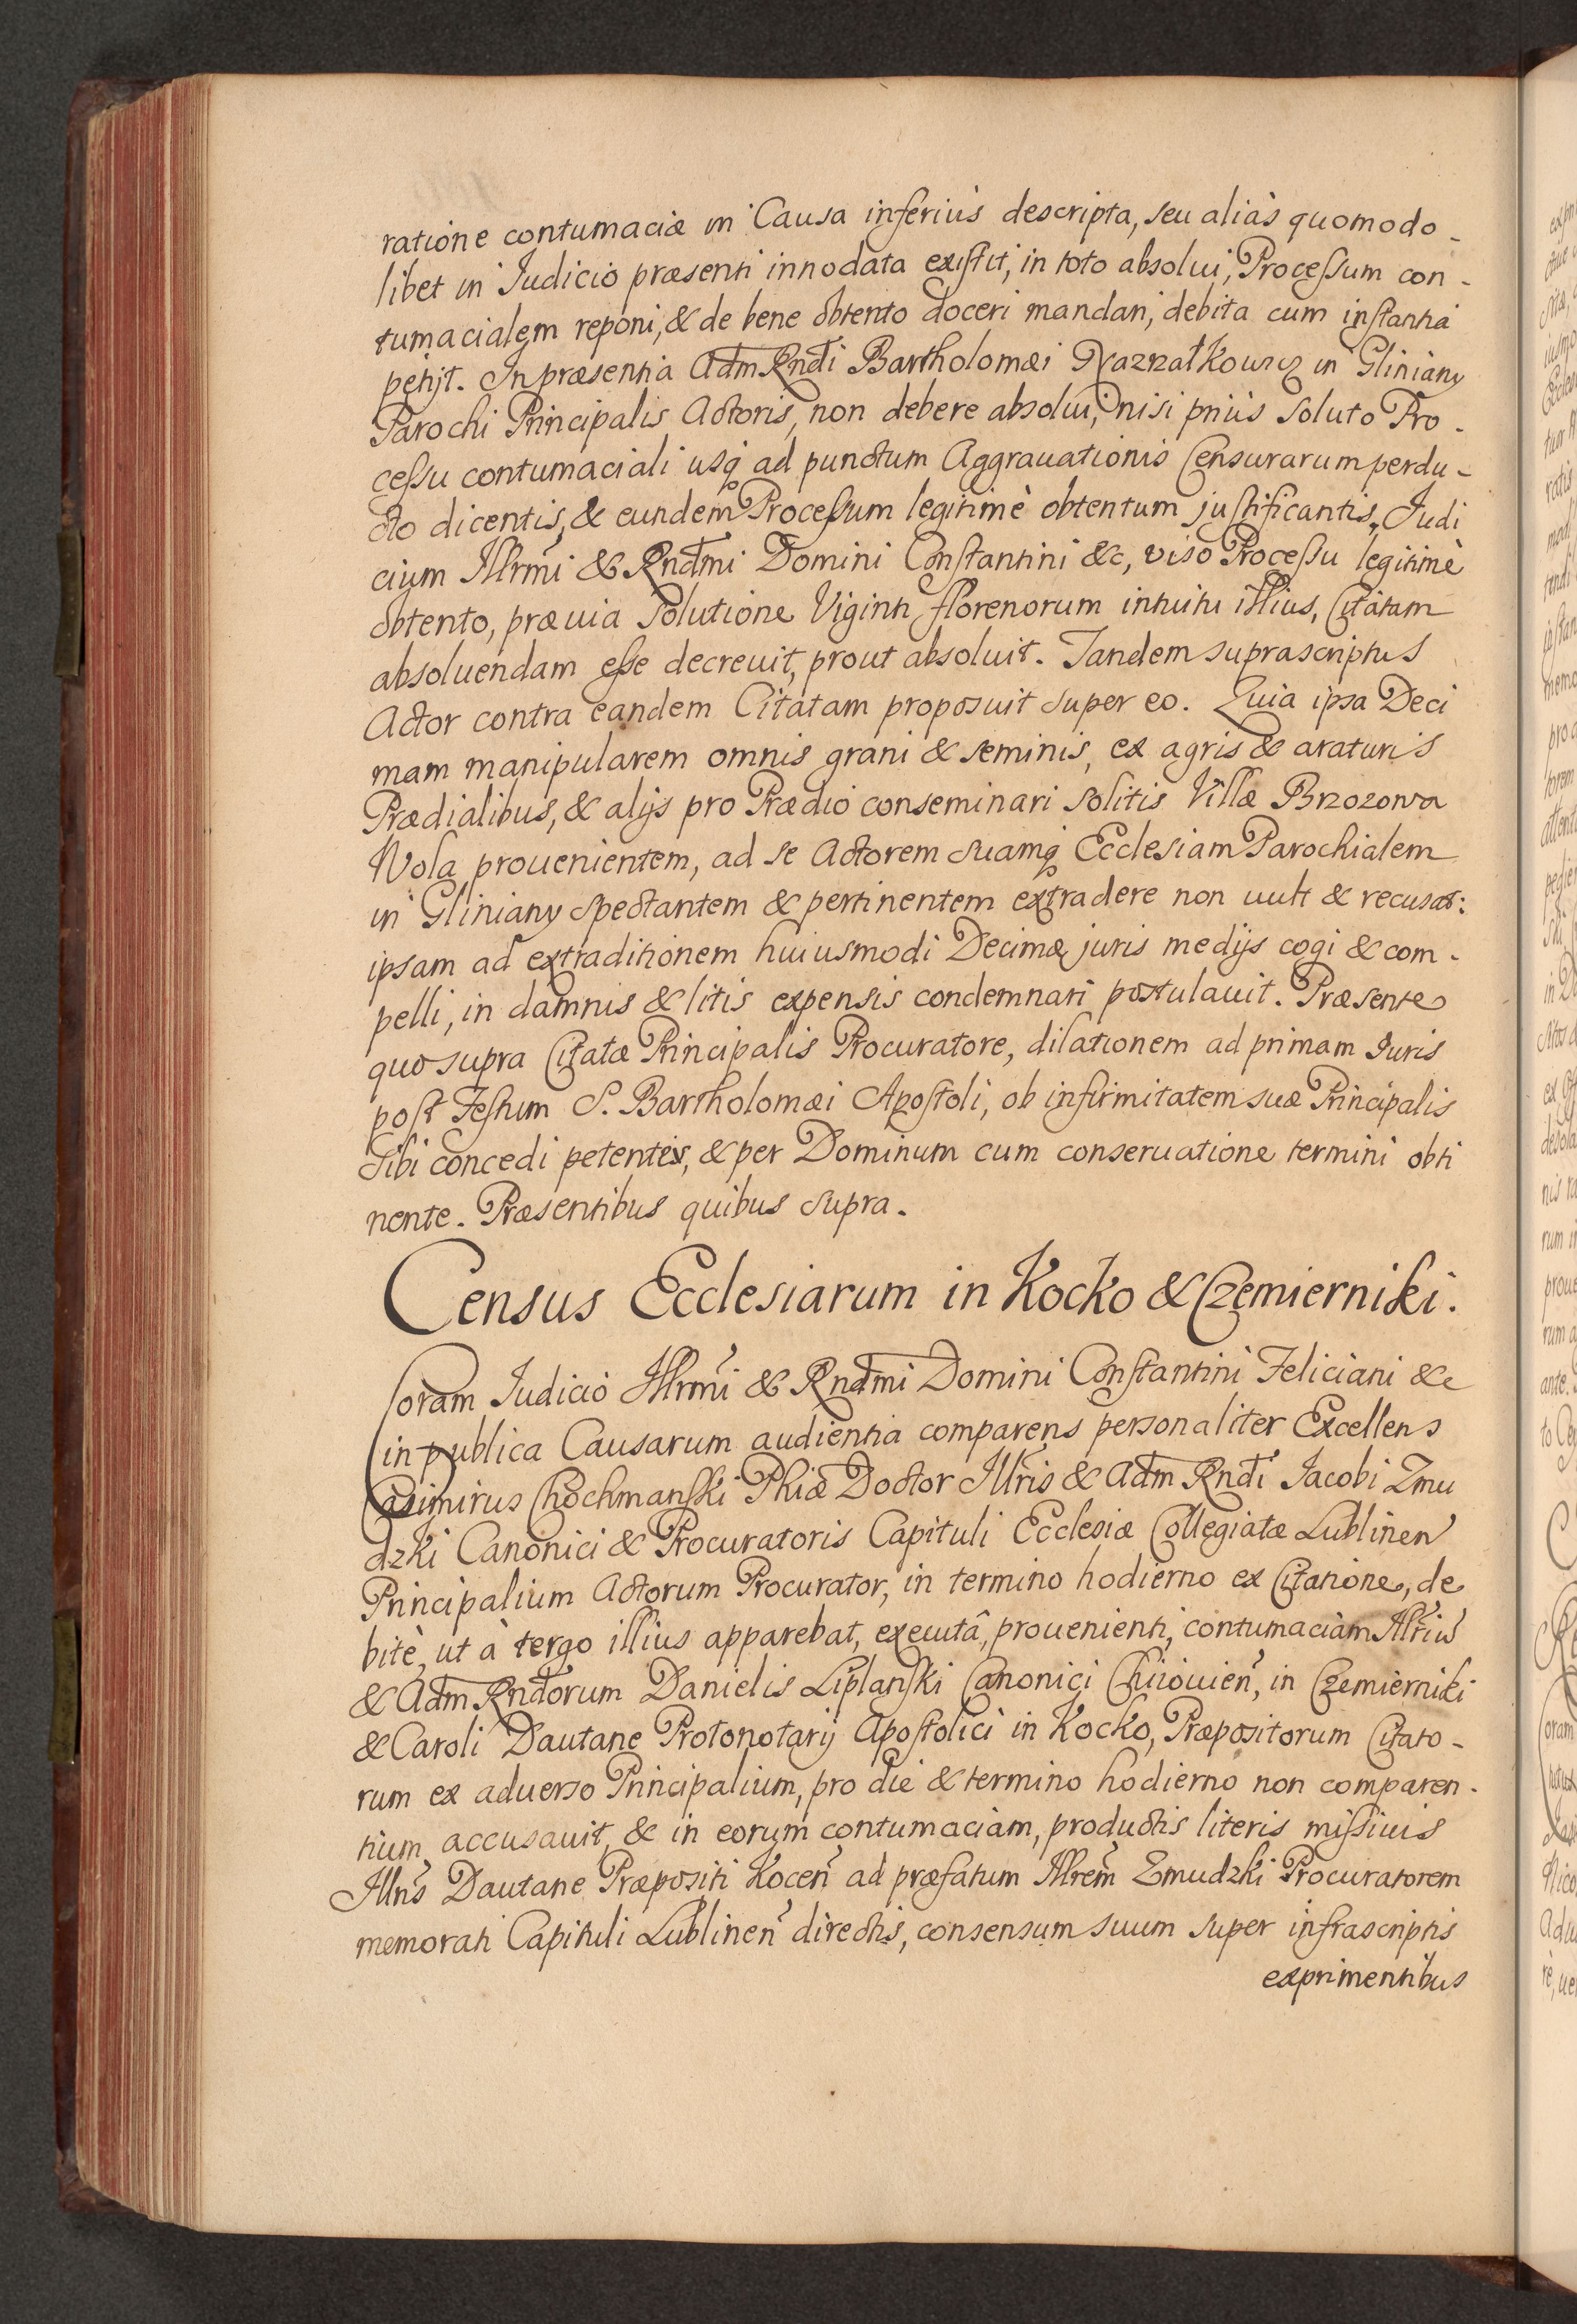 ratione contumaciæ in Causa inferiùs descripta, seu aliàs quomodo-
libet in Judicio præsenti innodata existit, in toto absolui, Processum con-
tumacialem reponi, & de bene obtento doceri mandari, debita cum instantia
petijt. In præsentia Adm Rndi Bartholomæi in Gliniany
Parochi Principalis Actoris, non debere absolui, nisi priùs soluto Pro-
cessu contumaciali usq ad punctum Aggrauationis Censurarum perdu-
cto dicentis, & eundem Processum legitimè obtentum justificantis. Judi
cium Illrmi & Rndmi Domini Constantini &c, viso Processu legitimè
obtento, præuia solutione Viginti florenorum intuitu illius, Citatam
absoluendam esse decreuit, prout absoluit. Tandem suprascriptus
Actor contra eandem Citatam proposuit super eo. Quia ipsa Deci
mam manipularem omnis grani & seminis, ex agris & araturis
Prædialibus, & alijs pro Prædio conseminari solitis Villæ Brzozowa
Wola prouenientem, ad se Actorem suamq Ecclesiam Parochialem
in Gliniany spectantem & pertinentem extradere non uult & recusat:
ipsam ad extraditionem huiusmodi Decimæ juris medijs cogi & com-
pelli, in damnis & litis expensis condemnari postulauit. Præsente
quo supra Citatæ Principalis Procuratore, dilationem ad primam Juris
post Festum S. Bartholomæi Apostoli, ob infirmitatem suæ Principalis
sibi concedi petentis, & per Dominum cum conseruatione termini obti
nente. Præsentibus quibus supra.
Census Ecclesiarum in Kocko & Czemierniki.
Coram Judicio Illrmi & Rndmi Domini Constantini Feliciani &c
in publica Causarum audientia comparens personaliter Excellens
Casimirus Chochmanski Phiæ Doctor Illris & Adm Rndi Jacobi Zmu
dzki Canonici & Procuratoris Capituli Ecclesiæ Collegiatæ Lublinen
Principalium Actorum Procurator, in termino hodierno ex Citatione, de
bitè, ut à tergo illius apparebat, executâ, prouenienti, contumaciam Illrius
& Adm Rndorum Danielis Liplanski Canonici Chiiouien, in Czemierniki
& Caroli Dautane Protonotarij Apostolici in Kocko, Præpositorum Citato-
rum ex aduerso Principalium, pro die & termino hodierno non comparen-
tium accusauit, & in eorum contumaciam, productis literis missiuis
Illris Dautane Præpositi Kocen ad præfatum Illrem Zmudzki Procuratorem
memorati Capituli Lublinen directis, consensum suum super infrascriptis
exprimentibus